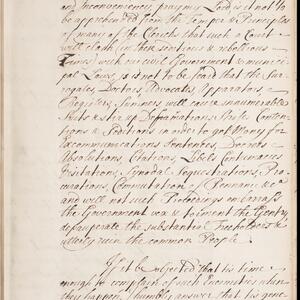 and Inconveniency, pray my Lord is it not to
be apprehended from the Temper & Principles
of many of the Church that such a Court
will clash (in these factious & rebellious
Times) with our civil Government & munici
pal Laws, is it not to be fear'd that the Sur-
rogates, Doctors, Advocates, Apparators, &
Registers, Sumners will cause innumerable
Suits & stir up Defamations, Strife Conten-
tions & Seditions in order to get Mony for
Excommunications Sentences, Decrees
Absolutions, Citations, Libels Contumacies
Visitations, Synodals Sequestrations, Pro-
curations, Commutation of Pennance &c a
and will not such Proceedings embarass
the Government vex & torment the Gentry
depauperate the substantial Freeholders &
utterly ruin the common People.
If it be objected that its time
enough to complain of such Enormities when
they happen I humbly answer that its gene